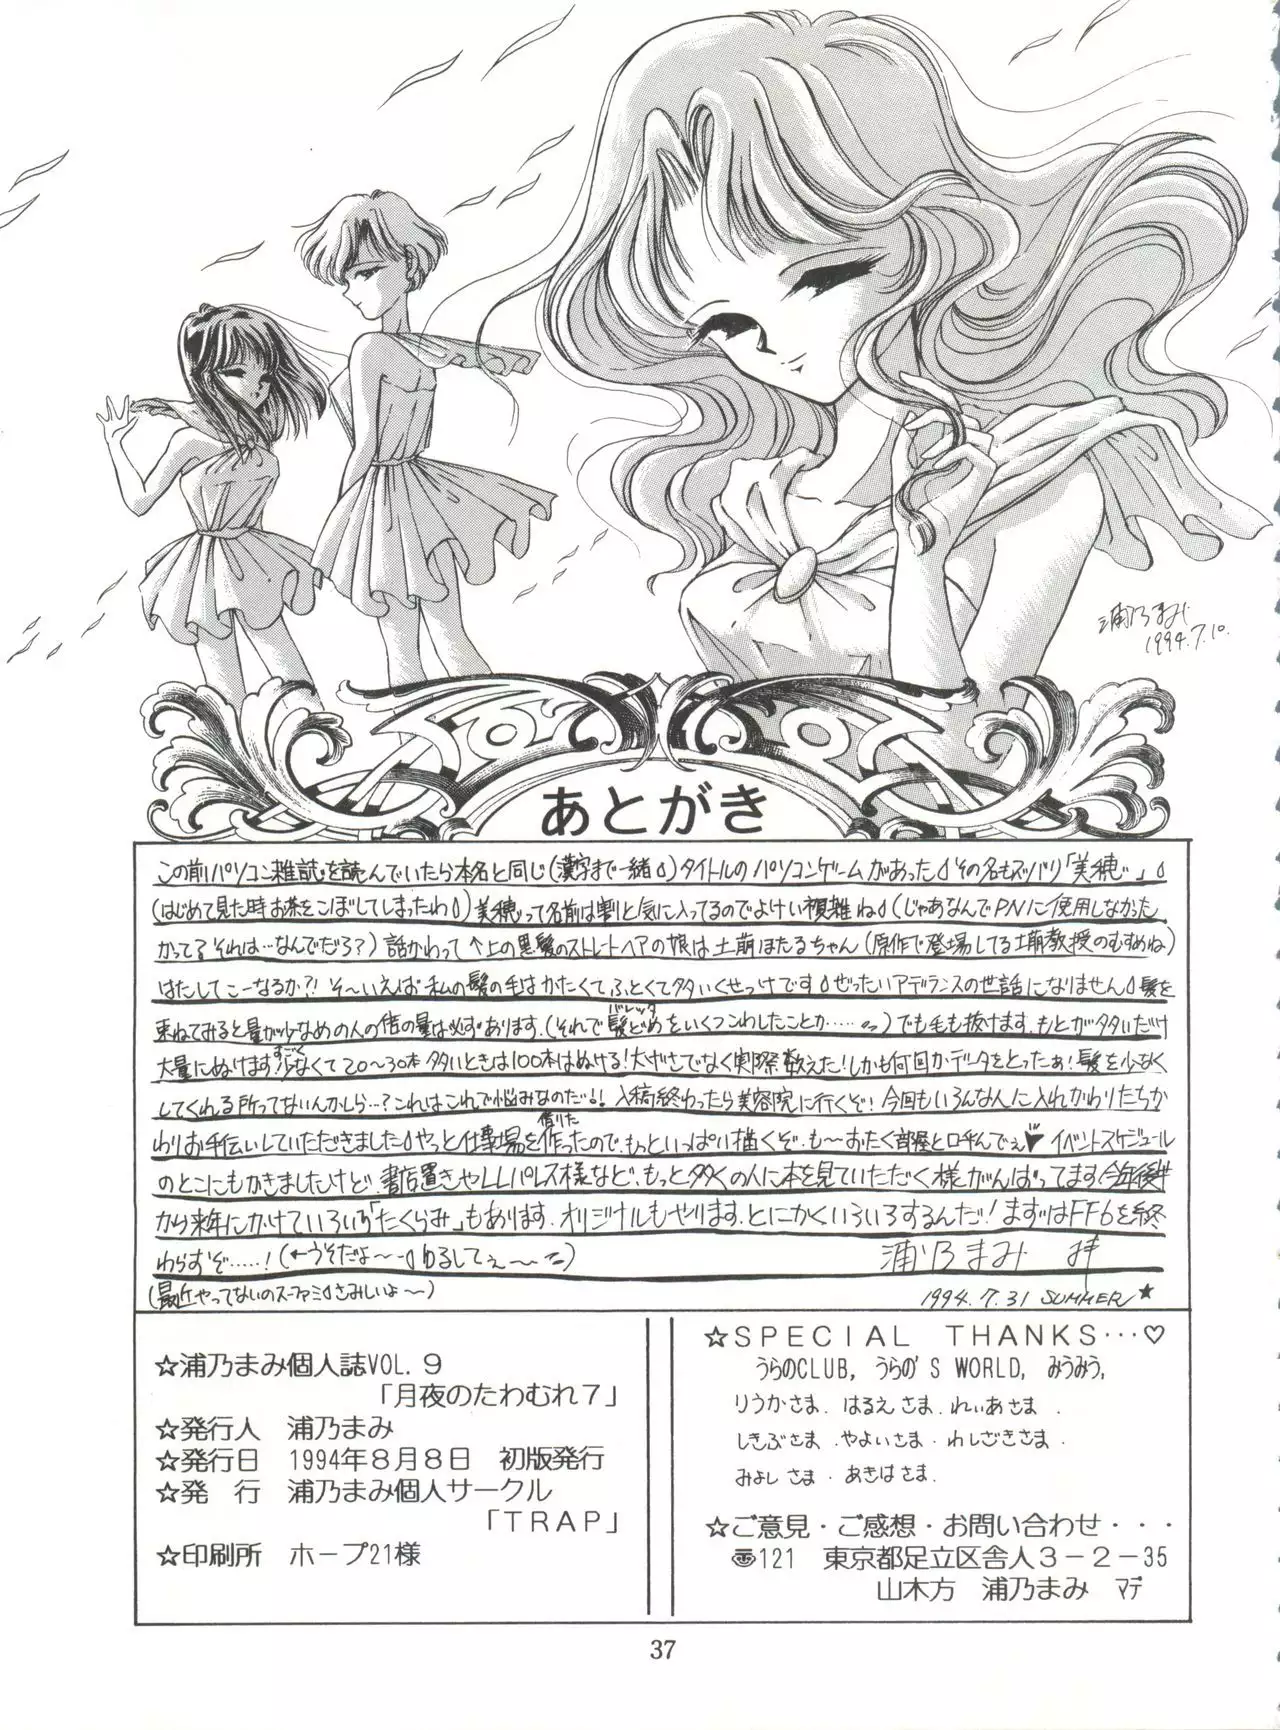 浦乃まみ
1994.7.10.
あとがき
この前パソコン雑誌を読んでいたら本名と同じ(漢字まで一緒)タイトルのパソコンゲームがあった その名もズバリ「美穂」
(はじめて見た時お茶をこぼしてしまったわ)美穂って名前は割と気に入ってるのでよけい複雑ね (じゃあなんでPNに使用しなかった
かって? それは…なんでだろ?)話かわって ↑上の黒髪のストレートヘアの娘は土萠ほたるちゃん(原作で登場してる土萠教授のむすめね)
はたしてこーなるか?! そ〜いえば私の髪の毛はかたくてふとくて多いくせっけです ぜったいアデランスの世話になりません 髪を
束ねてみると量が少なめの人の倍の量は必ずあります.(それで髪どめ(バレッタ)をいくつこわしたことか……)でも毛も抜けます.もとが多いだけ
大量にぬけます!少なくて(すごく)20〜30本 多いときは100本はぬける!大げさでなく実際数えた!しかも何回かデータをとったぁ!髪を少なく
してくれる所ってないんかしら…?これはこれで悩みなのだ!入稿終わったら美容院に行くぞ!今回もいろんな人に入れかわりたちか
わりお手伝いしていただきました やっと仕事場を作った(借りた)ので.もっといっぱい描くぞ.も〜おたく部屋と呼んでぇ♥ イベントスケジュール
のとこにもかきましたけど.書店置きやLLパレス様など.もっと多くの人に本を見ていただく様がんばってます!今年後半
から来年にかけていろいろ「たくらみ」もあります.オリジナルもやります.とにかくいろいろするんだ!まずはFF6を終
わらすぞ……!(←うそだよ〜 ゆるしてぇ〜) 浦乃まみ 拝
(最近やってないのスーファミ さみしいよ〜) 1994.7.31 SUMMER★
☆浦乃まみ個人誌VOL.9
「月夜のたわむれ7」
☆発行人 浦乃まみ
☆発行日 1994年8月8日 初版発行
☆発 行 浦乃まみ個人サークル
「TRAP」
☆印刷所 ホープ21様
☆SPECIAL THANKS…♡
うらのCLUB, うらの'S WORLD, みうみう,
りうかさま.はるえさま.れいあさま.
しきぶさま.やよいさま.わしざきさま.
みよしさま.あきはさま.
☆ご意見・ご感想・お問い合わせ・・・
〠121 東京都足立区舎人3-2-35
山木方 浦乃まみ マデ
37